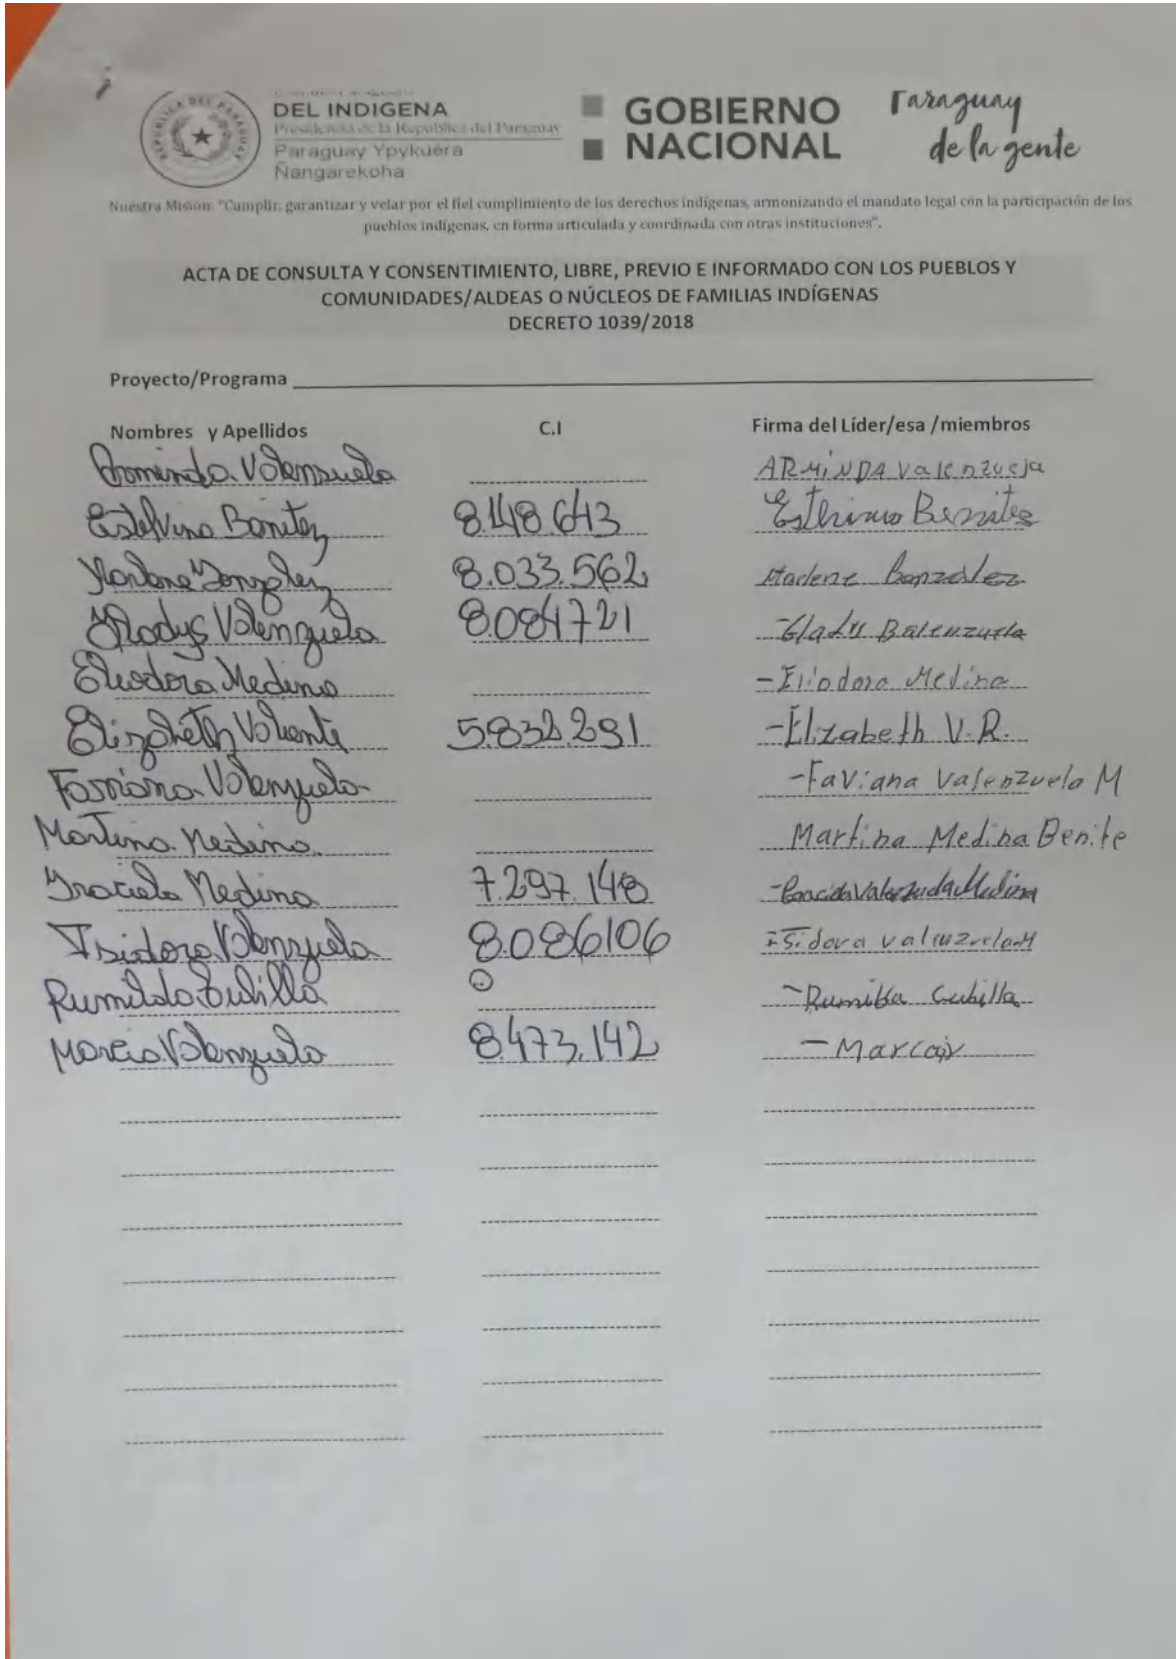 DEL INDIGENA
Presidencia de la República del Paraguay
Paraguay Ypykuéra
Ñangarekoha
REPUBLICA DEL PARAGUAY
GOBIERNO
NACIONAL
Paraguay
de la gente
Nuestra Misión: "Cumplir, garantizar y velar por el fiel cumplimiento de los derechos indígenas, armonizando el mandato legal con la participación de los
pueblos indígenas, en forma articulada y coordinada con otras instituciones".
ACTA DE CONSULTA Y CONSENTIMIENTO, LIBRE, PREVIO E INFORMADO CON LOS PUEBLOS Y
COMUNIDADES/ALDEAS O NÚCLEOS DE FAMILIAS INDÍGENAS
DECRETO 1039/2018
Proyecto/Programa
Nombres y Apellidos C.I Firma del Líder/esa /miembros
Valenzuela ARMINDA Valenzuela
Estelvina Benitez 8.148.643
Marlene Gonzalez 8.033.562 Marlene
Gladys Valenzuela 8.084721 -Glady Balenzuela
Eliodora Medina -Eliodora Medina
Elizabeth Valiente 5.832.291 -Elizabeth V.R.
Faviana Valenzuela -Faviana Valenzuela M
Martina Medina Martina Medina Benite
Graciela Medina 7.297.148
Isidora Valenzuela 8.086106 Isidora valenzuela M
Rumilda Cubilla -Rumilda Cubilla
Marcia Valenzuela 8.473.142